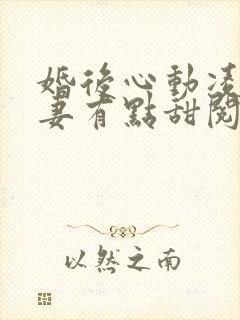 婚後心動凌
妻有點甜閱
以然之南